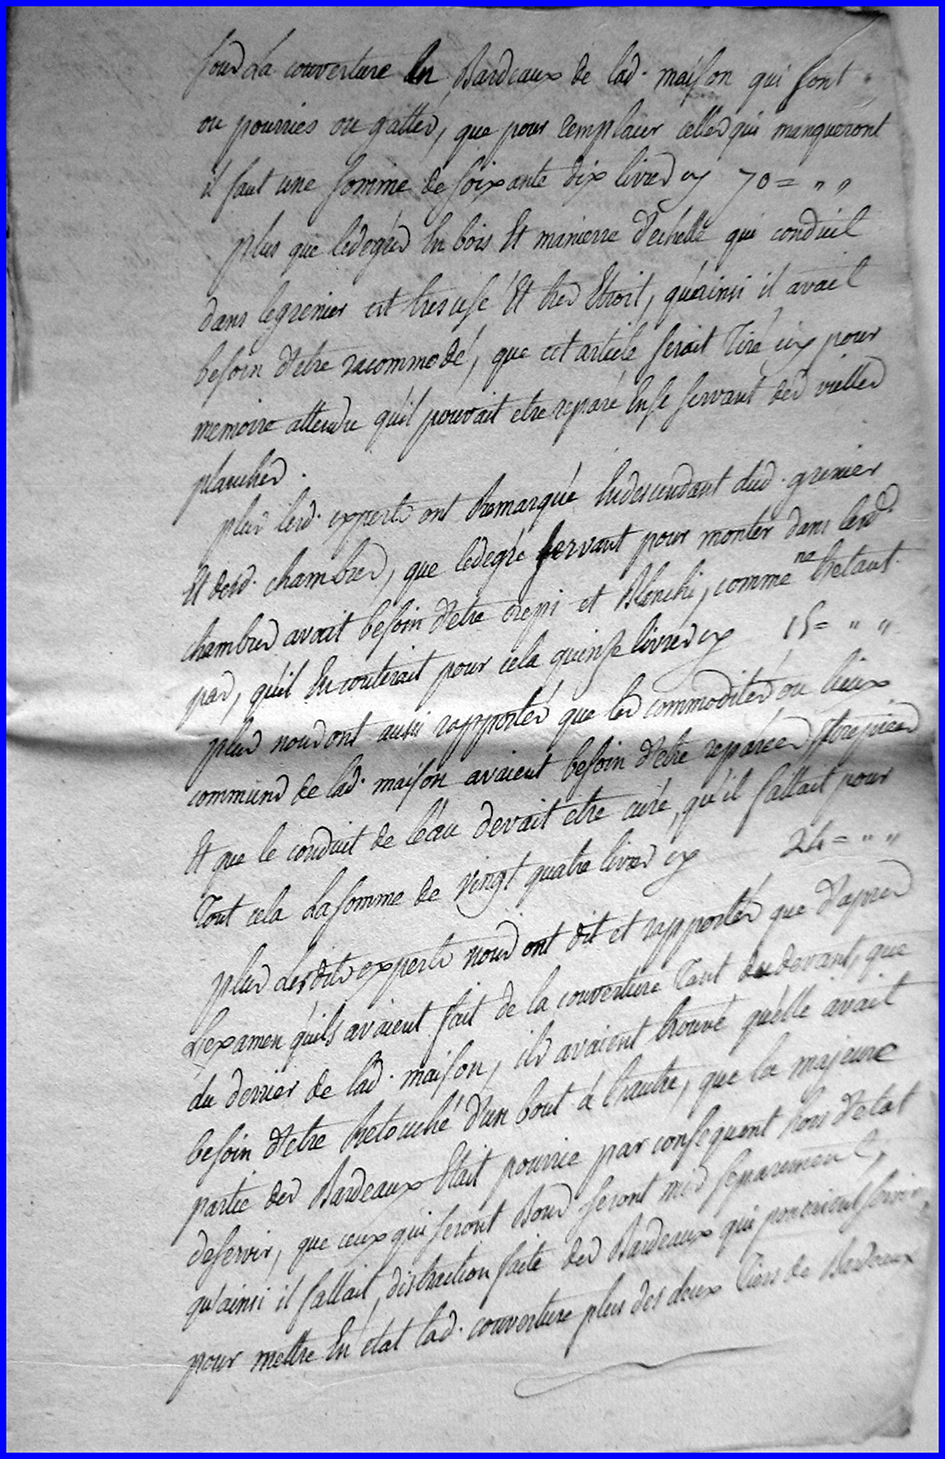 sous La couverture En Bardeaux de lad. maison qui sont
ou pourries ou gattés, que pour remplacer celles qui manqueront
il faut une somme de soixante dix livres cy 70 = " "
plus que ledegrés En bois Et manierre d'echelle qui conduit
dans legrenier est tres usé Et tres Etroit, qu'ainsi il avait
besoin d'etre racommodé, que cet article serait Tiré icy pour
memoire attendu qu'il pouvait etre reparé En se servant des vielles
planches.
plus lesd. experts ont Remarqué Endescendant dud. grenier
Et desd. chambres, que ledegré servant pour monter dans lesd.
chambres avait besoin d'etre crepi et Blanchi, comme na L'etant
pas, qu'il En couterait pour cela quinse livres cy 15 = " "
plus nous ont aussi rapportés que les commodités ou lieux
communs de lad. maison avaient besoin d'etre reparées
Et que le conduit de l'eau devait etre curé, qu'il fallait pour
Tout cela La somme de vingt quatre livres cy 24 = " "
plus Lesdits experts nous ont dit et rapportés que d'apres
L'examen qu'ils avaient fait de la couverture Tant du devant, que
du derrier de lad. maison, ils avaient trouvé qu'elle avait
besoin d'etre Retouché d'un bout à L'autre, que la majeure
partie des Bardeaux Etait pourrie par consequent hors d'etat
deservir, que ceux qui seront Bons seront mis separement,
qu'ainsi il fallait, distraction faite des Bardeaux qui pourraient servir,
pour mettre En etat lad. couverture plus des deux Tiers de Bardeaux